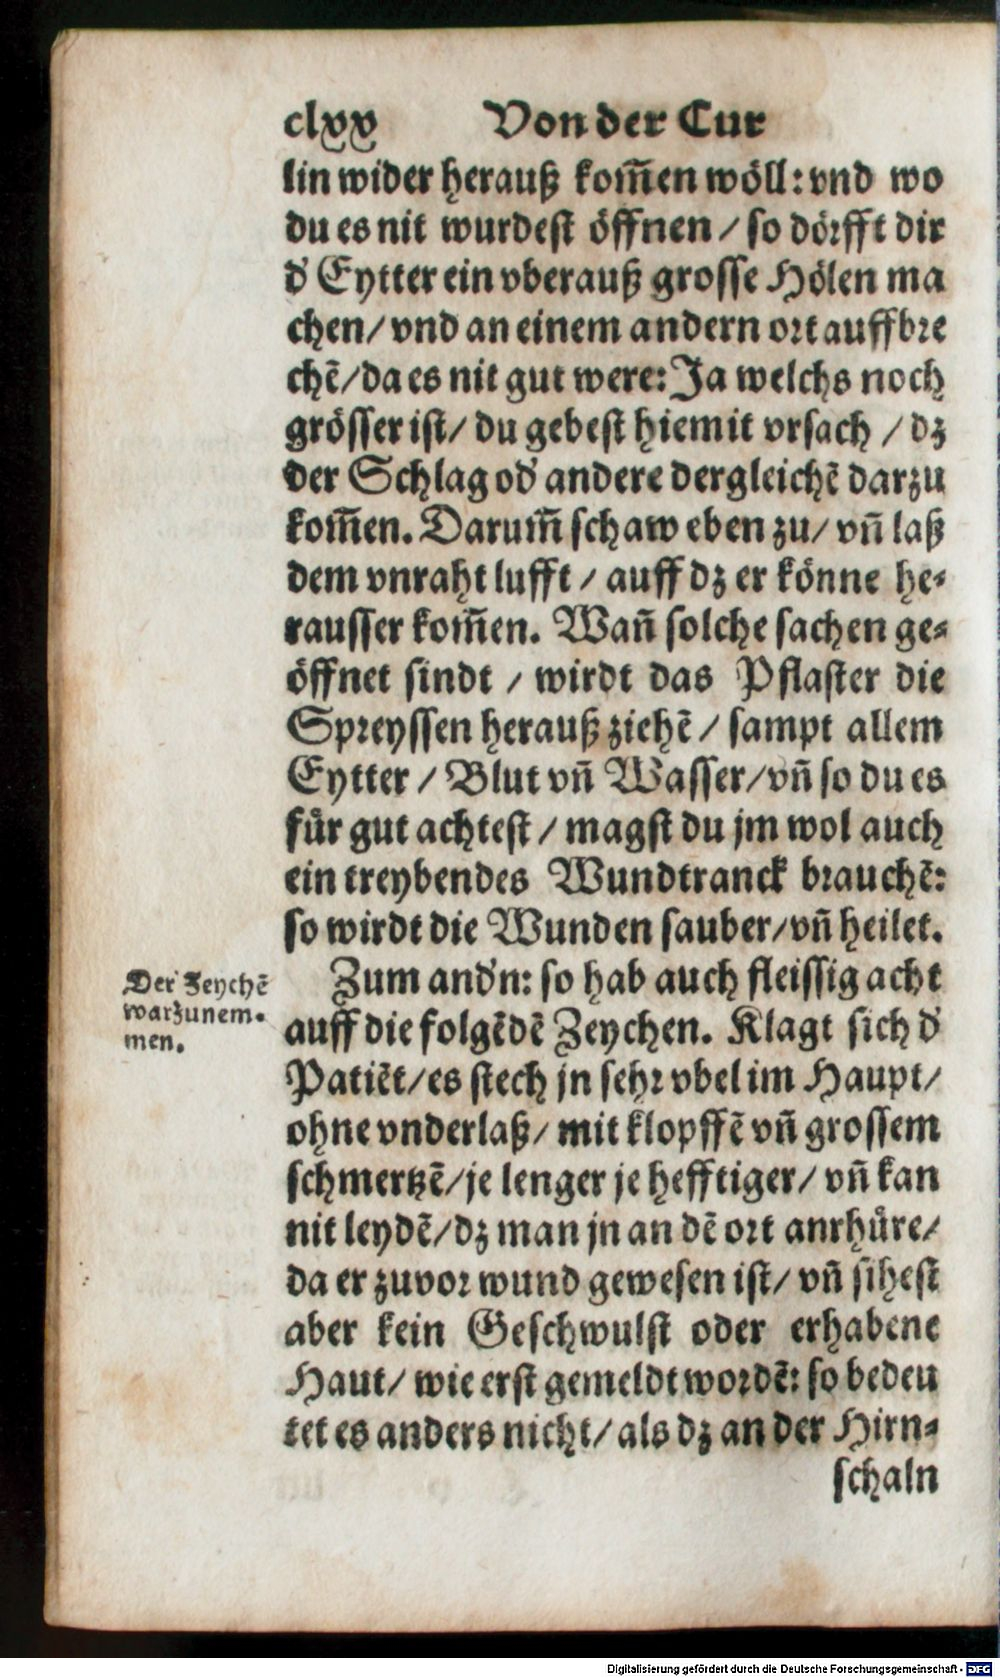 clxx Von der Cur
lin wider herauß kom̃en wöll: vnd wo
du es nit wurdest öffnen / so dörfft dir
d' Eytter ein vberauß grosse Hölen ma
chen / vnd an einem andern ort auffbre
chẽ / da es nit gut were: Ja welchs noch
grösser ist / du gebest hiemit vrsach / dz
der Schlag od' andere dergleichẽ darzu
kom̃en. Darum̃ schaw eben zu / vñ laß
dem vnraht lufft / auff dz er könne he-
rausser kom̃en. Wañ solche sachen ge-
öffnet sindt / wirdt das Pflaster die
Spreyssen herauß ziehẽ / sampt allem
Eytter / Blut vñ Wasser / vñ so du es
für gut achtest / magst du jm wol auch
ein treybendes Wundtranck brauchẽ:
so wirdt die Wunden sauber / vñ heilet.
Der Zeychẽ
warzunem-
men.
Zum and'n: so hab auch fleissig acht
auff die folgẽdẽ Zeychen. Klagt sich d'
Patiẽt / es stech jn sehr vbel im Haupt /
ohne vnderlaß / mit klopffẽ vñ grossem
schmertzẽ / je lenger je hefftiger / vñ kan
nit leydẽ / dz man jn an dẽ ort anrhüre /
da er zuvor wund gewesen ist / vñ sihest
aber kein Geschwulst oder erhabene
Haut / wie erst gemeldt wordẽ: so bedeu
tet es anders nicht / als dz an der Hirn-
schaln
Digitalisierung gefördert durch die Deutsche Forschungsgemeinschaft - DFG